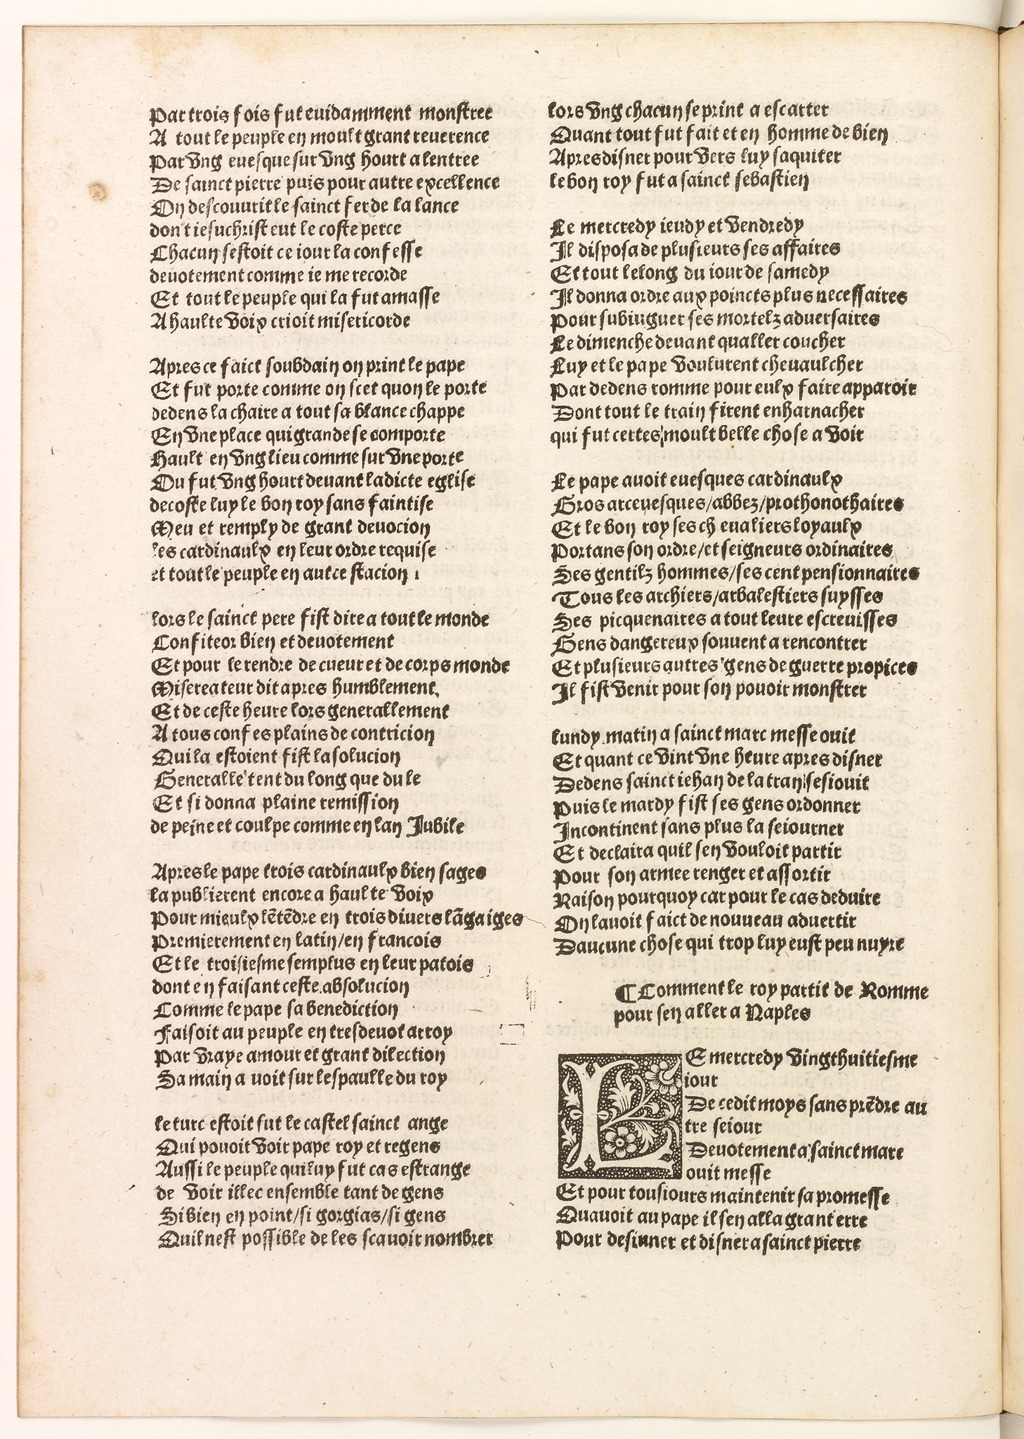 Par trois fois fut euidamment monstree
A tout le peuple en moult grant reuerence
Par vng euesque sur vng hourt a lentree
De sainct pierre puis pour autre excellence
On descouurit le sainct fer de la lance
dont iesuchrist eut le coste perce
Chacun sestoit ce iour la confesse
deuotement comme ie me recorde
Et tout le peuple qui la fut amasse
A haulte voix crioit misericorde
Apres ce faict soubdain on print le pape
Et fut porte comme on scet quon le porte
dedens la chaire a tout sa blance chappe
En vne place qui grande se comporte
Hault en vng lieu comme sur vne porte
Ou fut vng hourt deuant ladicte eglise
decoste luy le bon roy sans faintise
Meu et remply de grant deuocion
les cardinaulx en leur ordre requise
et tout le peuple en autce stacion
lors le sainct pere fist dire a tout le monde
Confiteor bien et deuotement
Et pour le rendre de cueur et de corps monde
Misereateur dit apres humblement
Et de ceste heure lors generallement
A tous confes plains de contricion
Qui la estoient fist lasolucion
Generalle tent du long que du le
Et si donna plaine remission
de peine et coulpe comme en lan Jubile
Apres le pape trois cardinaulx bien sages
la publierent encore a haulte voix
Pour mieulx lētēdre en trois diuers lāgaiges
Premierement en latin/en francois
Et le troisiesme semplus en leur patois
dont en faisant ceste absolucion
Comme le pape sa benediction
Faisoit au peuple en tresdeuot arroy
Par vraye amour et grant dilection
Sa main a voit sur lespaulle du roy
le turc estoit fut le castel sainct ange
Qui pouoit voir pape roy et regens
Aussi le peuple qui luy fut cas estrange
de voir illec ensemble tant de gens
Si bien en point/si gorgias/si gens
Quil nest possible de les scauoir nombrer
lors vng chacun se print a escarter
Quant tout fut fait et en homme de bien
Apres disner pour vers luy saquiter
le bon roy fut a sainct sebastien
Le mercredy ieudy et vendredy
Il disposa de plusieurs ses affaires
Et tout lelong du iour de samedy
Il donna ordre aux poincts plus necessaires
Pour subiuguer ses mortelz aduersaires
Le dimenche deuant qualler coucher
Luy et le pape voulurent cheuaulcher
Par dedens romme pour eulx faire apparoir
Dont tout le train firent enharnacher
qui fut certes moult belle chose a voir
Le pape auoit euesques cardinaulx
Gros arceuesques/abbez/prothonothaires
Et le bon roy ses cheualiers loyaulx
Portans son ordre/et seigneurs ordinaires
Ses gentilz hommes/ses cent pensionnaires
Tous les archiers/arbalestiers suysses
Ses picquenaires a tout leurs escreuisses
Gens dangereux souuent a rencontrer
Et plusieurs autres gens de guerre propices
Il fist venir pour son pouoir monstrer
lundy matin a sainct marc messe ouit
Et quant ce vint vne heure apres disner
Dedens sainct iehan de latran sesiouit
Puis le mardy fist ses gens ordonner
Incontinent sans plus la seiourner
Et declaira quil sen vouloit partir
Pour son armee renger et assortir
Raison pourquoy car pour le cas deduire
On lauoit faict de nouueau aduertir
Daucune chose qui trop luy eust peu nuyre
¶ Comment le roy partit de Romme
pour sen aller a Naples
LE mercredy vingthuitiesme
iour
De cedit moys sans prēdre au
tre seiour
Deuotement a sainct marc
ouit messe
Et pour tousiours maintenir sa promesse
Quauoit au pape il sen alla grant erre
Pour desiuner et disner a sainct pierre